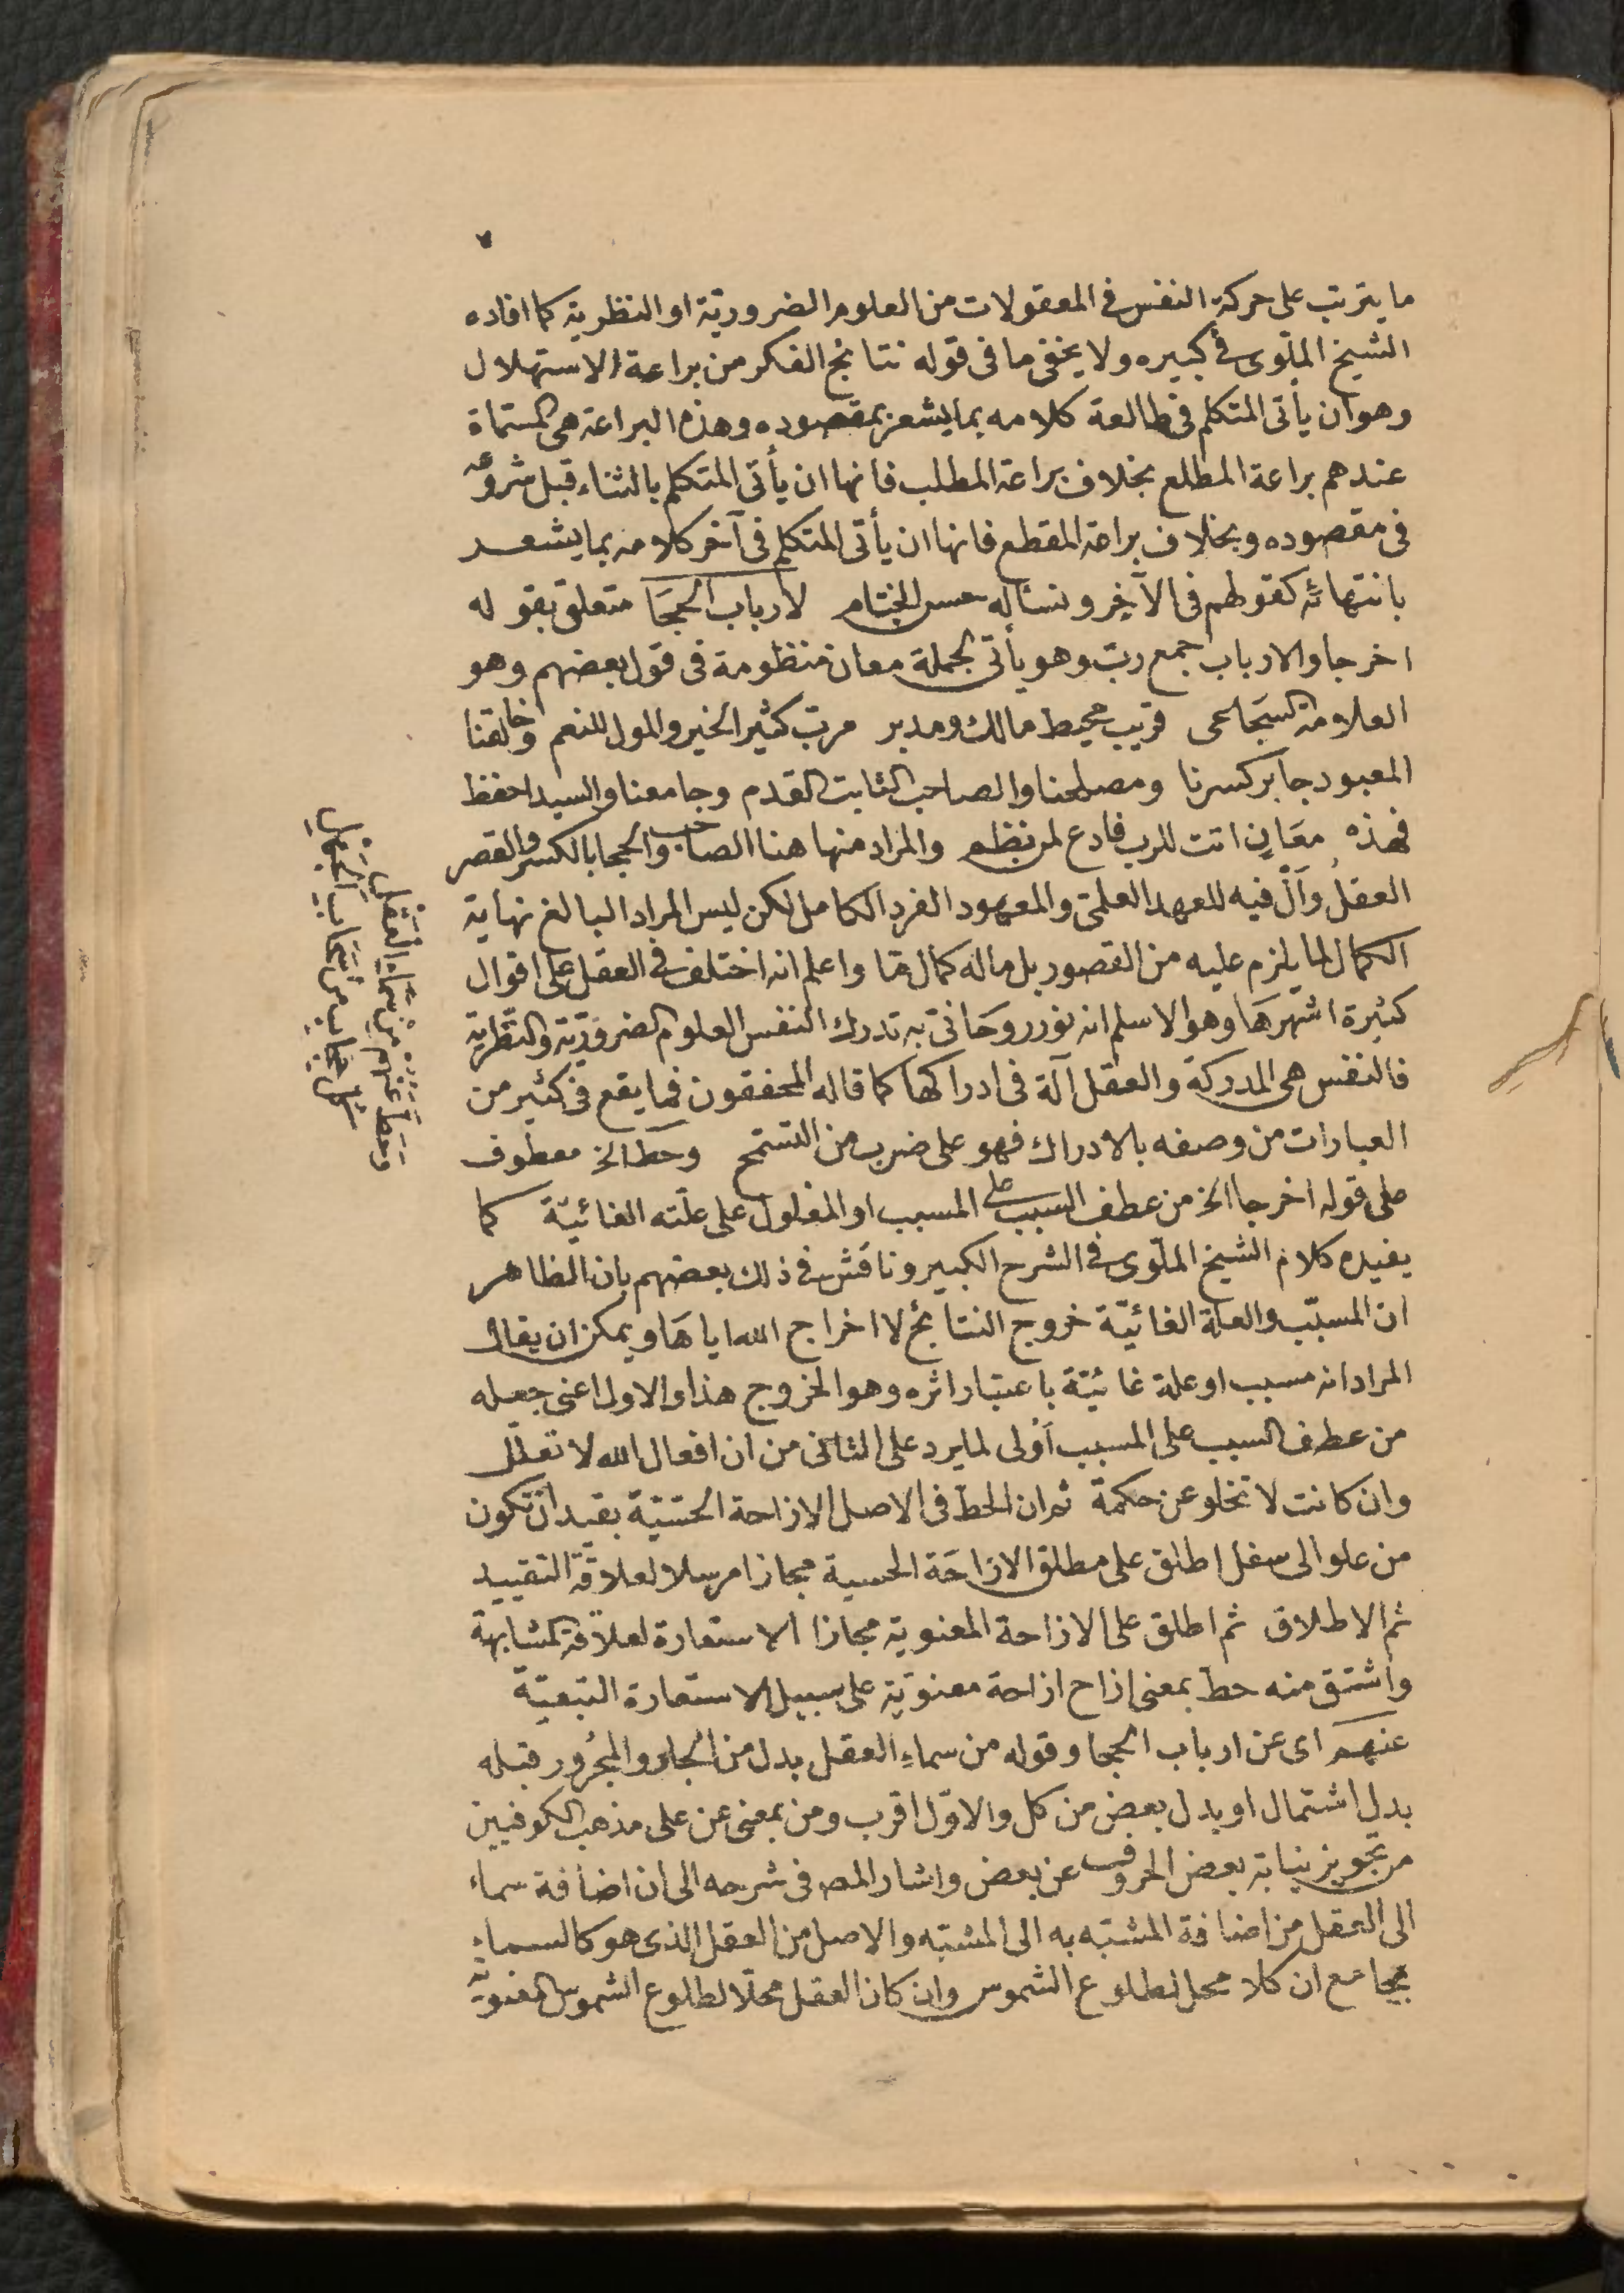 ٧
ما يترتب على حركة النفس في المعقولات من العلوم الضرورية او النظرية كما افاده
الشيخ الملّوى في كبيره ولا يخفى ما فى قوله نتائج الفكر من براعة الاستهلال
وهو ان يأتى المتكلم فى طالعة كلامه بما يشعر بمقصوده وهذه البراعة هى المسماة
عندهم براعة المطلع بخلاف براعة المطلب فانها ان يأتى المتكلم بالثناء قبل شروعه
فى مقصوده وبخلاف براعة المقطع فانها ان يأتى المتكلم فى آخر كلامه بما يشعر
بانتهائه كقولهم فى الآخر ونسأله حسن الختام لأرباب الحجَا متعلق بقوله
اخرجا والارباب جمع ربّ وهو يأتى لجملة معان منظومة فى قول بعضهم وهو
العلامة السجَاعى قريب محيط مالك ومدبر مربّ كثير الخير والمول للنعم وخالقنا
المعبود جابر كسرنا ومصلحنا والصاحب الثابت القدم وجامعنا والسيد احفظ
فهذه معَانٍ اتت للرب فادع لمن نظم والمراد منها هنا الصاحب والحجا بالكسر والقصر
العقل وَألْ فيه للعهد العلمى والمعهود الفرد الكامل لكن ليس المراد البالغ نهاية
الكمال لما يلزم عليه من القصور بل ماله كمال مّا واعلم انه اختلف فى العقل على اقوال
كثيرة اشهرهَا وهو الاسلم انه نور روحَانىّ به تدرك النفس العلوم الضروريّة والنّظرية
فالنفس هى المدركة والعقل آلة فى ادراكها كما قاله المحققون فما يقع فى كثير من
العبارات من وصفه بالادراك فهو على ضرب من التسمّح وحَطّ الخ معطوف
على قوله اخرجا الخ من عطف السبب على المسبب او المعلول على علّته الغائيّة كما
يفيده كلام الشيخ الملّوى فى الشرح الكبير وناقش فى ذلك بعضهم بان الظاهر
ان المسبّب والعلة الغائيّة خروج النتائج لا اخراج الله اياهَا ويمكن ان يقال
المراد انه مسبب او علة غائيّة باعتبار اثره وهو الخروج هذا والاول اعنى جعله
من عطف السبب على المسبب أَوْلى لما يرد على الثانى من ان افعال الله لا تعلّل
وان كانت لا تخلو عن حكمة ثم ان الحطّ فى الاصل الازاحة الحسّيّة بقيد ان تكون
من علو الى سفل اطلق على مطلق الازاحَة الحسية مجازا مرسلا لعلاقة التقييد
ثم الاطلاق ثم اطلق على الازاحة المعنوية مجازا الاستعارة لعلاقة المشابهة
واشتق منه حطّ بمعنى ازاح ازاحة معنويّة على سبيل الاستعارة التبعيّة
عنهم اى عن ارباب الحجا وقوله من سماءِ العقل بدل من الجار والمجرُور قبله
بدل اشتمال او بدل بعض من كل والاوّل اقرب ومن بمعنى عن على مذهب الكوفيين
من تجويز نيابة بعض الحروف عن بعض واشار المص فى شرحه الى ان اضافة سماء
الى العقل من اضافة المشبّه به الى المشبّه والاصل من العقل الذى هو كالسماء
بجامَع ان كلا محل لطلوع الشموس وان كان العقل محلّا لطلوع الشموس المعنويّة
وَحَطَّ عَنْهُم مِنْ سَمَاءِ العَقْلِ
كلَّ حِجَابٍ مِنْ سَحَابِ الجَهْلِ